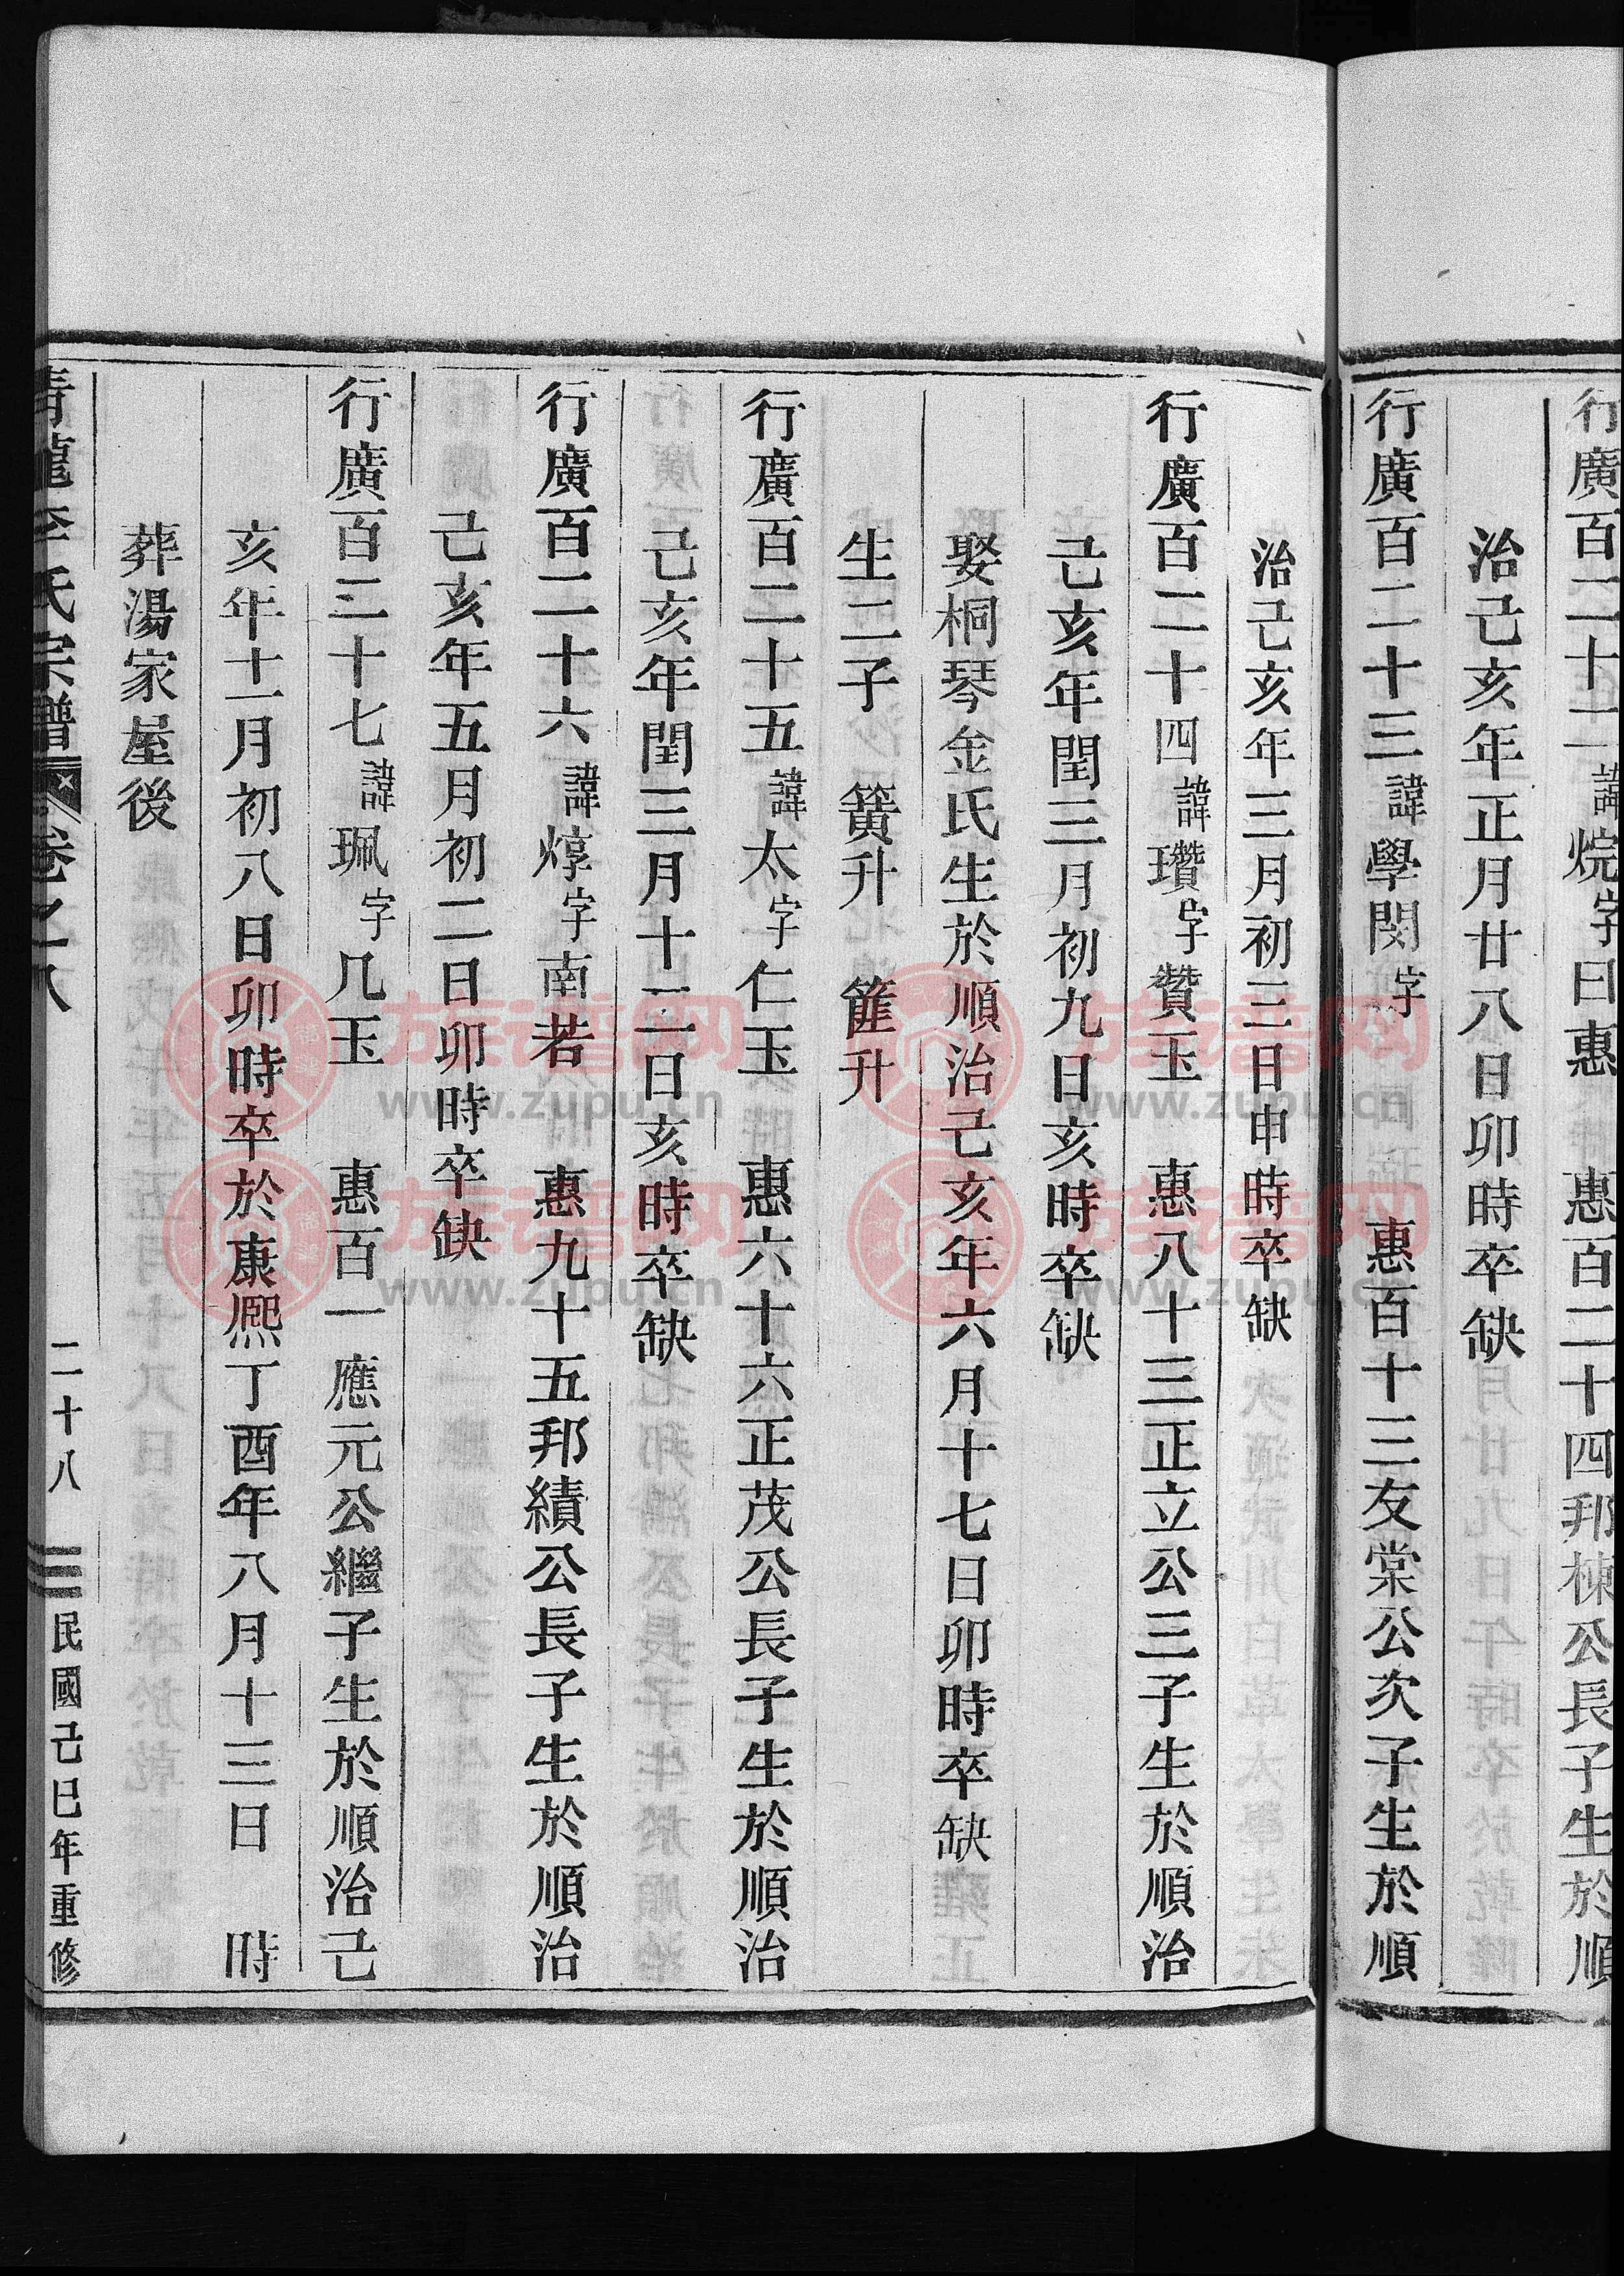 行廣百二十二諱烷字曰惠 惠百二十四邦棟公長子生於順
治己亥年正月廿八日卯時卒缺
行廣百二十三諱學閔字 惠百十三友棠公次子生於順
治己亥年三月初三日申時卒缺
行廣百二十四諱瓚字贊玉 惠八十三正立公三子生於順治
己亥年閏三月初九日亥時卒缺
娶桐琴金氏生於順治己亥年六月十七日卯時卒缺
生二子 簧升 篚升
行廣百二十五諱太字仁玉 惠六十六正茂公長子生於順治
己亥年閏三月十二日亥時卒缺
行廣百二十六諱焞字南若 惠九十五邦績公長子生於順治
己亥年五月初二日卯時卒缺
行廣百二十七諱珮字几玉 惠百一應元公繼子生於順治己
亥年十一月初八日卯時卒於康熙丁酉年八月十三日 時
葬湯家屋後
青龍李氏宗譜 卷之一八 二十八 民國己巳年重修
族谱网
www.zupu.cn
族谱网
www.zupu.cn
族谱网
www.zupu.cn
族谱网
www.zupu.cn